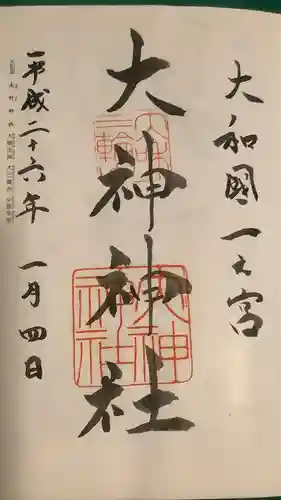 大和國一之宮
大神神社
平成二十六年 一月四日